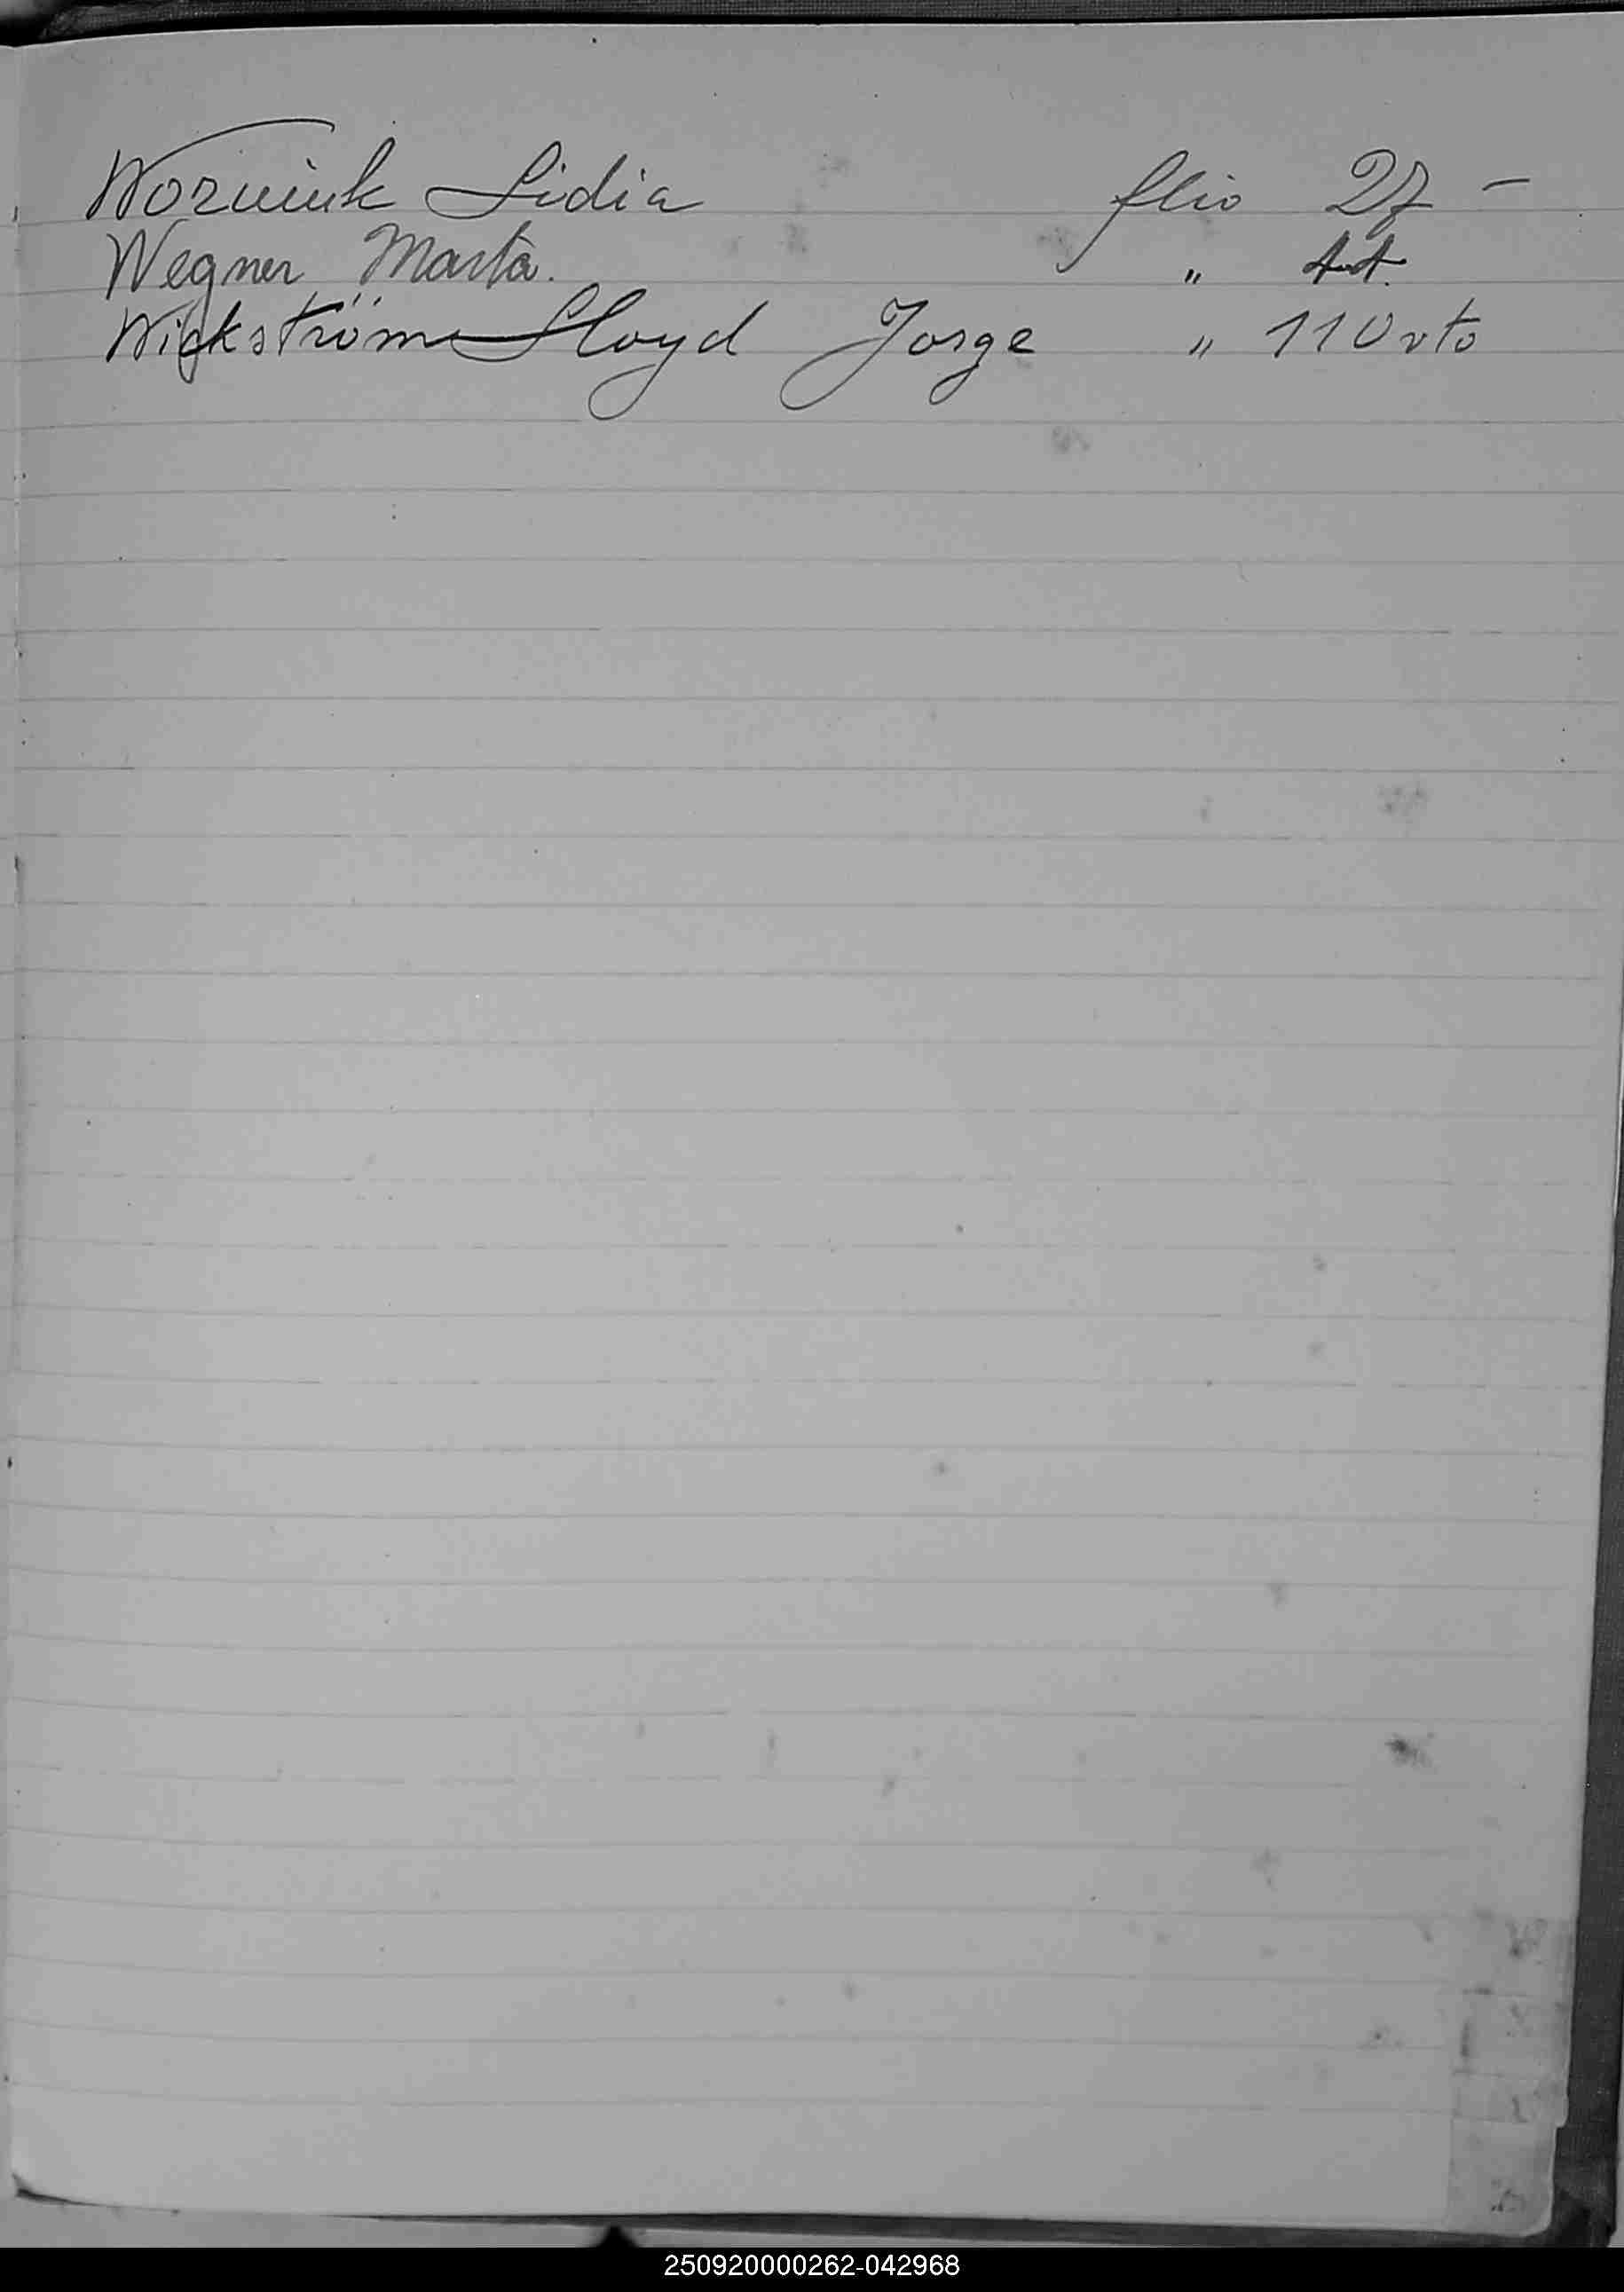 Worniuk Lidia flio 27 -
Wegner Marta. " 44.
Wickström Lloyd Jorge " 110 vto
250920000262-042968